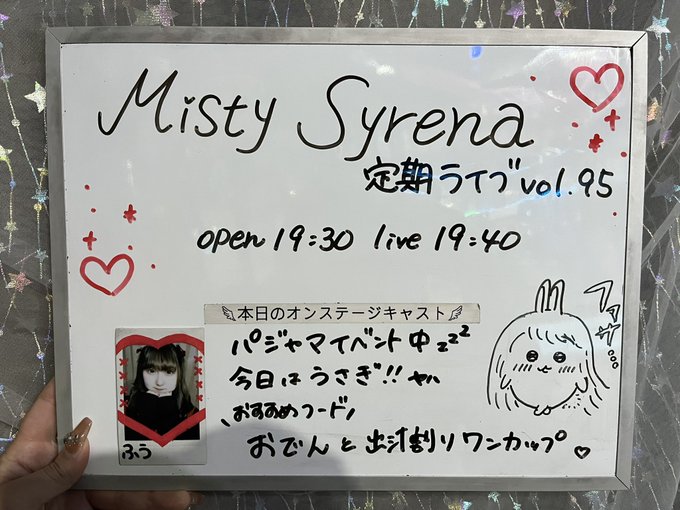 Misty Syrena
定期ライブ vol.95
open 19:30 live 19:40
本日のオンステージキャスト
パジャマイベント中zzz
今日はうさぎ!! ヤハ
おすすめフード
おでんと出汁割りワンカップ♡
ファサ…
ふう